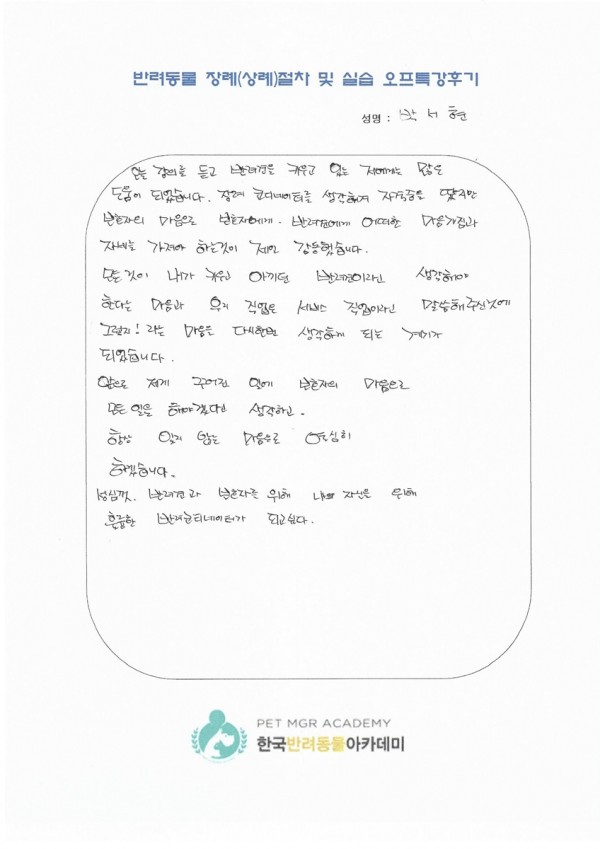 반려동물 장례(상례)절차 및 실습 오프특강후기
성명 : 박서현
오늘 강의를 듣고 반려견을 키우고 있는 저에게는 많은
도움이 되었습니다. 장례 코디네이터를 생각하며 자격증을 땄지만
보호자의 마음으로 보호자에게. 반려견에게 어떠한 마음가짐과
자세를 가져야 하는것이 제일 감동했습니다.
모든것이 내가 키우고 아끼던 반려견이라고 생각해야
한다는 마음과 우리 직업은 서비스 직업이라고 말씀해주신것에
그렇지! 라는 마음을 다시한번 생각하게 되는 계기가
되었습니다.
앞으로 제게 주어진 일에 보호자의 마음으로
모든 일을 해야겠다고 생각하고.
항상 잊지 않는 마음으로 열심히
하겠습니다.
성심껏. 반려견과 보호자를 위해 나의 자신을 위해
훌륭한 반려코디네이터가 되고싶다.
PET MGR ACADEMY
한국반려동물아카데미